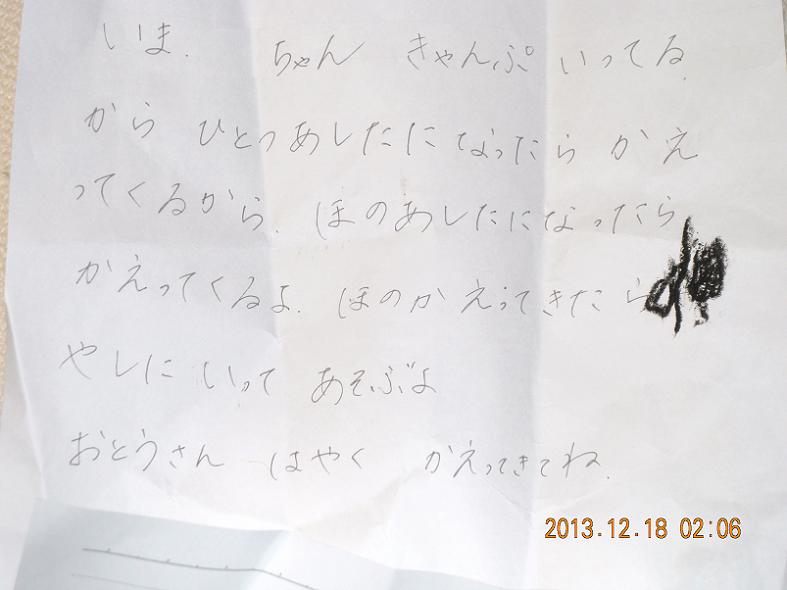 いま. ちゃん きゃんぷ いってる
から ひとつ あしたに なったら かえ
ってくるから. ほのあしたになったら
かえってくるよ. ほのかえってきたら
やしに いって あそぶよ
おとうさん はやく かえってきてね.
2013.12.18 02:06